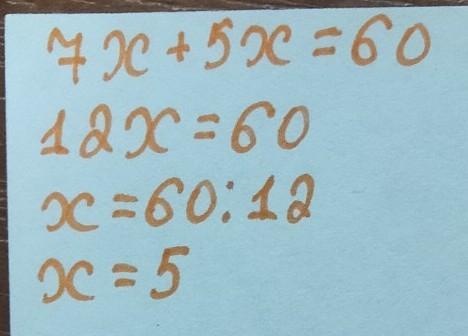 7x+5x=60
12x=60
x=60:12
x=5